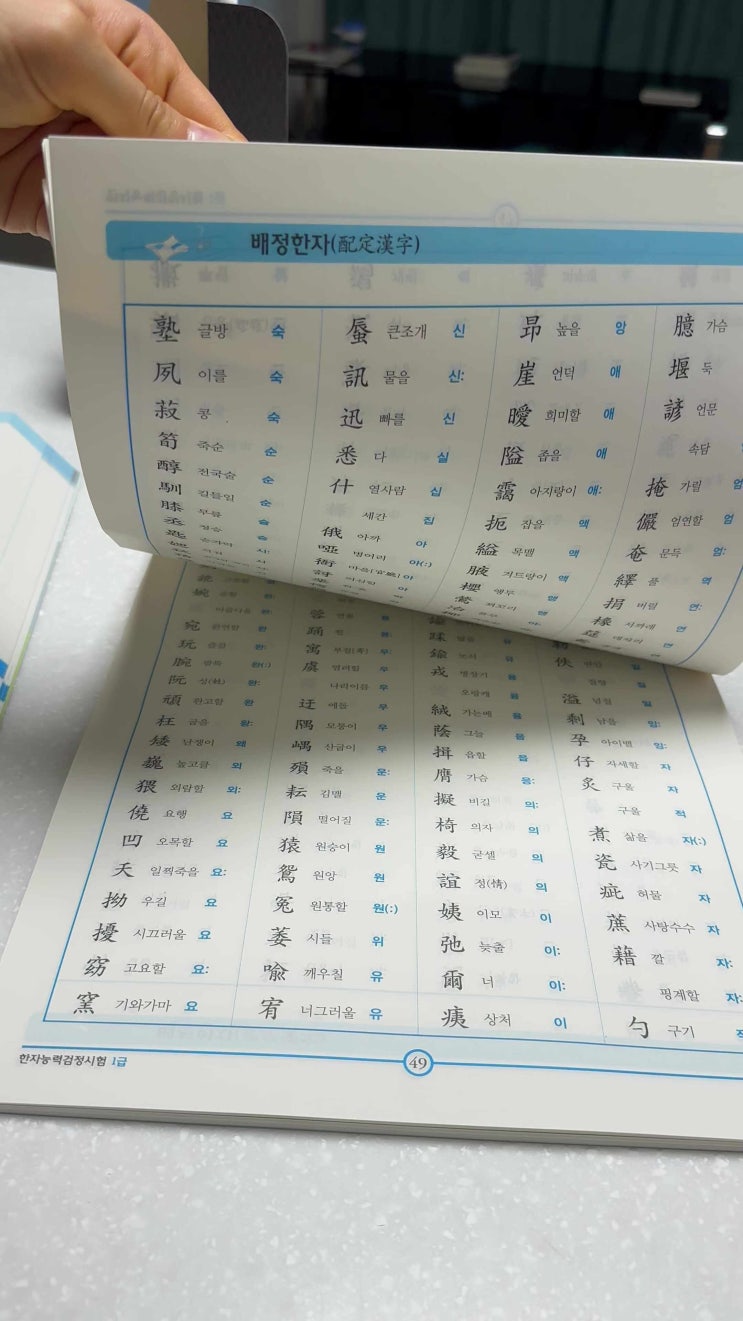 배정한자(配定漢字)
塾 글방 숙
夙 이를 숙
菽 콩 숙
筍 죽순 순
醇 전국술 순
馴 길들일 순
膝 무릎 슬
丞 정승 승
匙 숟가락 시:
蜃 큰조개 신
訊 물을 신:
迅 빠를 신
悉 다 실
什 열사람 십
세간 집
俄 아까 아
啞 벙어리 아(:)
衙 마을[官廳] 아
訝 의심할 아
昻 높을 앙
崖 언덕 애
曖 희미할 애
隘 좁을 애
靄 아지랑이 애:
扼 잡을 액
縊 목맬 액
腋 겨드랑이 액
櫻 앵두 앵
鶯 꾀꼬리 앵
臆 가슴
堰 둑
諺 언문
속담
掩 가릴 엄
儼 엄연할 엄
奄 문득 엄:
繹 풀 역
捐 버릴 연:
椽 서까래 연
筵 대자리 연
婉 순할 완:
아름다울 완:
宛 완연할 완
玩 즐길 완:
腕 팔뚝 완(:)
阮 성(姓) 완:
頑 완고할 완
枉 굽을 왕:
矮 난쟁이 왜
巍 높고클 외
猥 외람할 외:
僥 요행 요
凹 오목할 요
夭 일찍죽을 요:
拗 우길 요
擾 시끄러울 요
窈 고요할 요:
窯 기와가마 요
蓉 연꽃 용
踊 뛸 용:
寓 부칠(寄) 우:
虞 염려할 우
나라이름 우
迂 에돌 우
隅 모퉁이 우
嵎 산굽이 우
殞 죽을 운:
耘 김맬 운
隕 떨어질 운:
猿 원숭이 원
鴛 원앙 원
冤 원통할 원(:)
萎 시들 위
喩 깨우칠 유
宥 너그러울 유
蹂 밟을 유
鍮 놋쇠 유
戎 병장기 융
오랑캐 융
絨 가는베 융
蔭 그늘 음
揖 읍할 읍
膺 가슴 응:
擬 비길 의:
椅 의자 의
毅 굳셀 의
誼 정(情) 의
姨 이모 이
弛 늦출 이:
爾 너 이:
痍 상처 이
佚 편안 일
질탕 질
溢 넘칠 일
剩 남을 잉:
孕 아이밸 잉:
仔 자세할 자
炙 구울 자
구울 적
煮 삶을 자(:)
瓷 사기그릇 자
疵 허물 자
蔗 사탕수수 자
藉 깔 자:
핑계할 자:
勺 구기
한자능력검정시험 1급
49